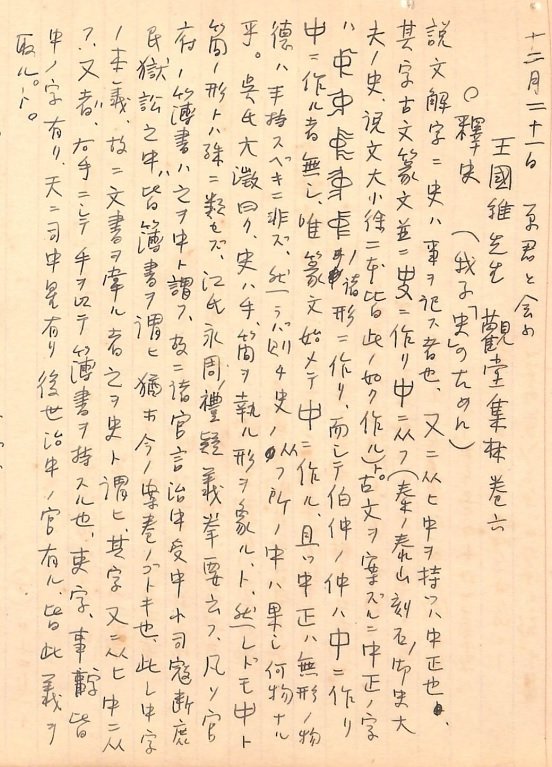 十二月二十一日
王國維先生 觀堂集林卷六
○釋史 (我子「史」のため)
説文解字ニ史ハ事ヲ記ス者也、又ニ从ヒ中ヲ持ツハ中正也、
其字古文篆文並ニ作リ中ニ从フ(秦ノ泰山刻石御史大
夫ノ史、説文大小徐二本皆此ノ如ク作ル)ト。古文ヲ案ズルニ中正ノ字
ハ ノ諸形ニ作リ、而シテ伯仲ノ仲ハ中ニ作リ
中ニ作ル者無シ、唯篆文始メテ中ニ作ル、且ツ中正ハ無形ノ物
德ハ手持スベキニ非ズ、然ラバ則チ史ノ从フ所ノ中ハ果シ何物ナル
乎。吳氏大澂曰ク、史ハ手、簡ヲ執ル形ヲ象ル、ト、然レドモ中ト
簡ノ形トハ殊ニ類セズ、江氏永周禮疑義擧要云フ、凡ソ官
府ノ簿書ハ之ヲ中ト謂フ、故ニ諸官言治中受中小司寇斷庶
民獄訟之中、皆簿書ヲ謂ヒ猶ホ今ノ案卷ノゴトキ也、此レ中字
ノ本義、故ニ文書ヲ掌ル者之ヲ史ト謂ヒ、其字又ニ从ヒ中ニ从
フ、又者、右手ニシテ手ヲ以テ簿書ヲ持スル也、吏字、事字皆
中ノ字有リ、天ニ司中星有リ後世治中ノ官有ル、皆此義ヲ
取ル。ト。